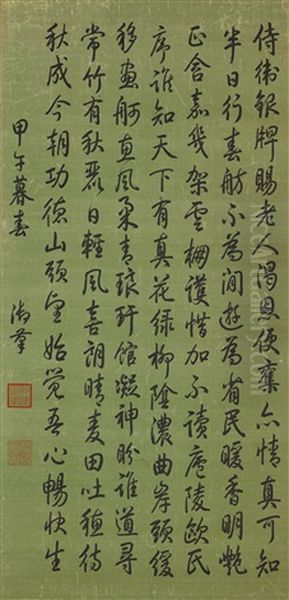 侍衛銀牌賜老人渴恩便奮亦情真可知
半日行春舫不為閒遊為省民暖香明艷
正含嘉幾架雲棚護惜加不讀廬陵歐氏
序誰知天下有真花綠柳陰濃曲岸頭緩
移畫舸直風柔青琅玕館凝神盼誰道尋
常竹有秋麗日輕風喜朗晴麥田吐穗待
秋成今朝功德山頭望始覺吾心暢快生
甲午暮春 御筆